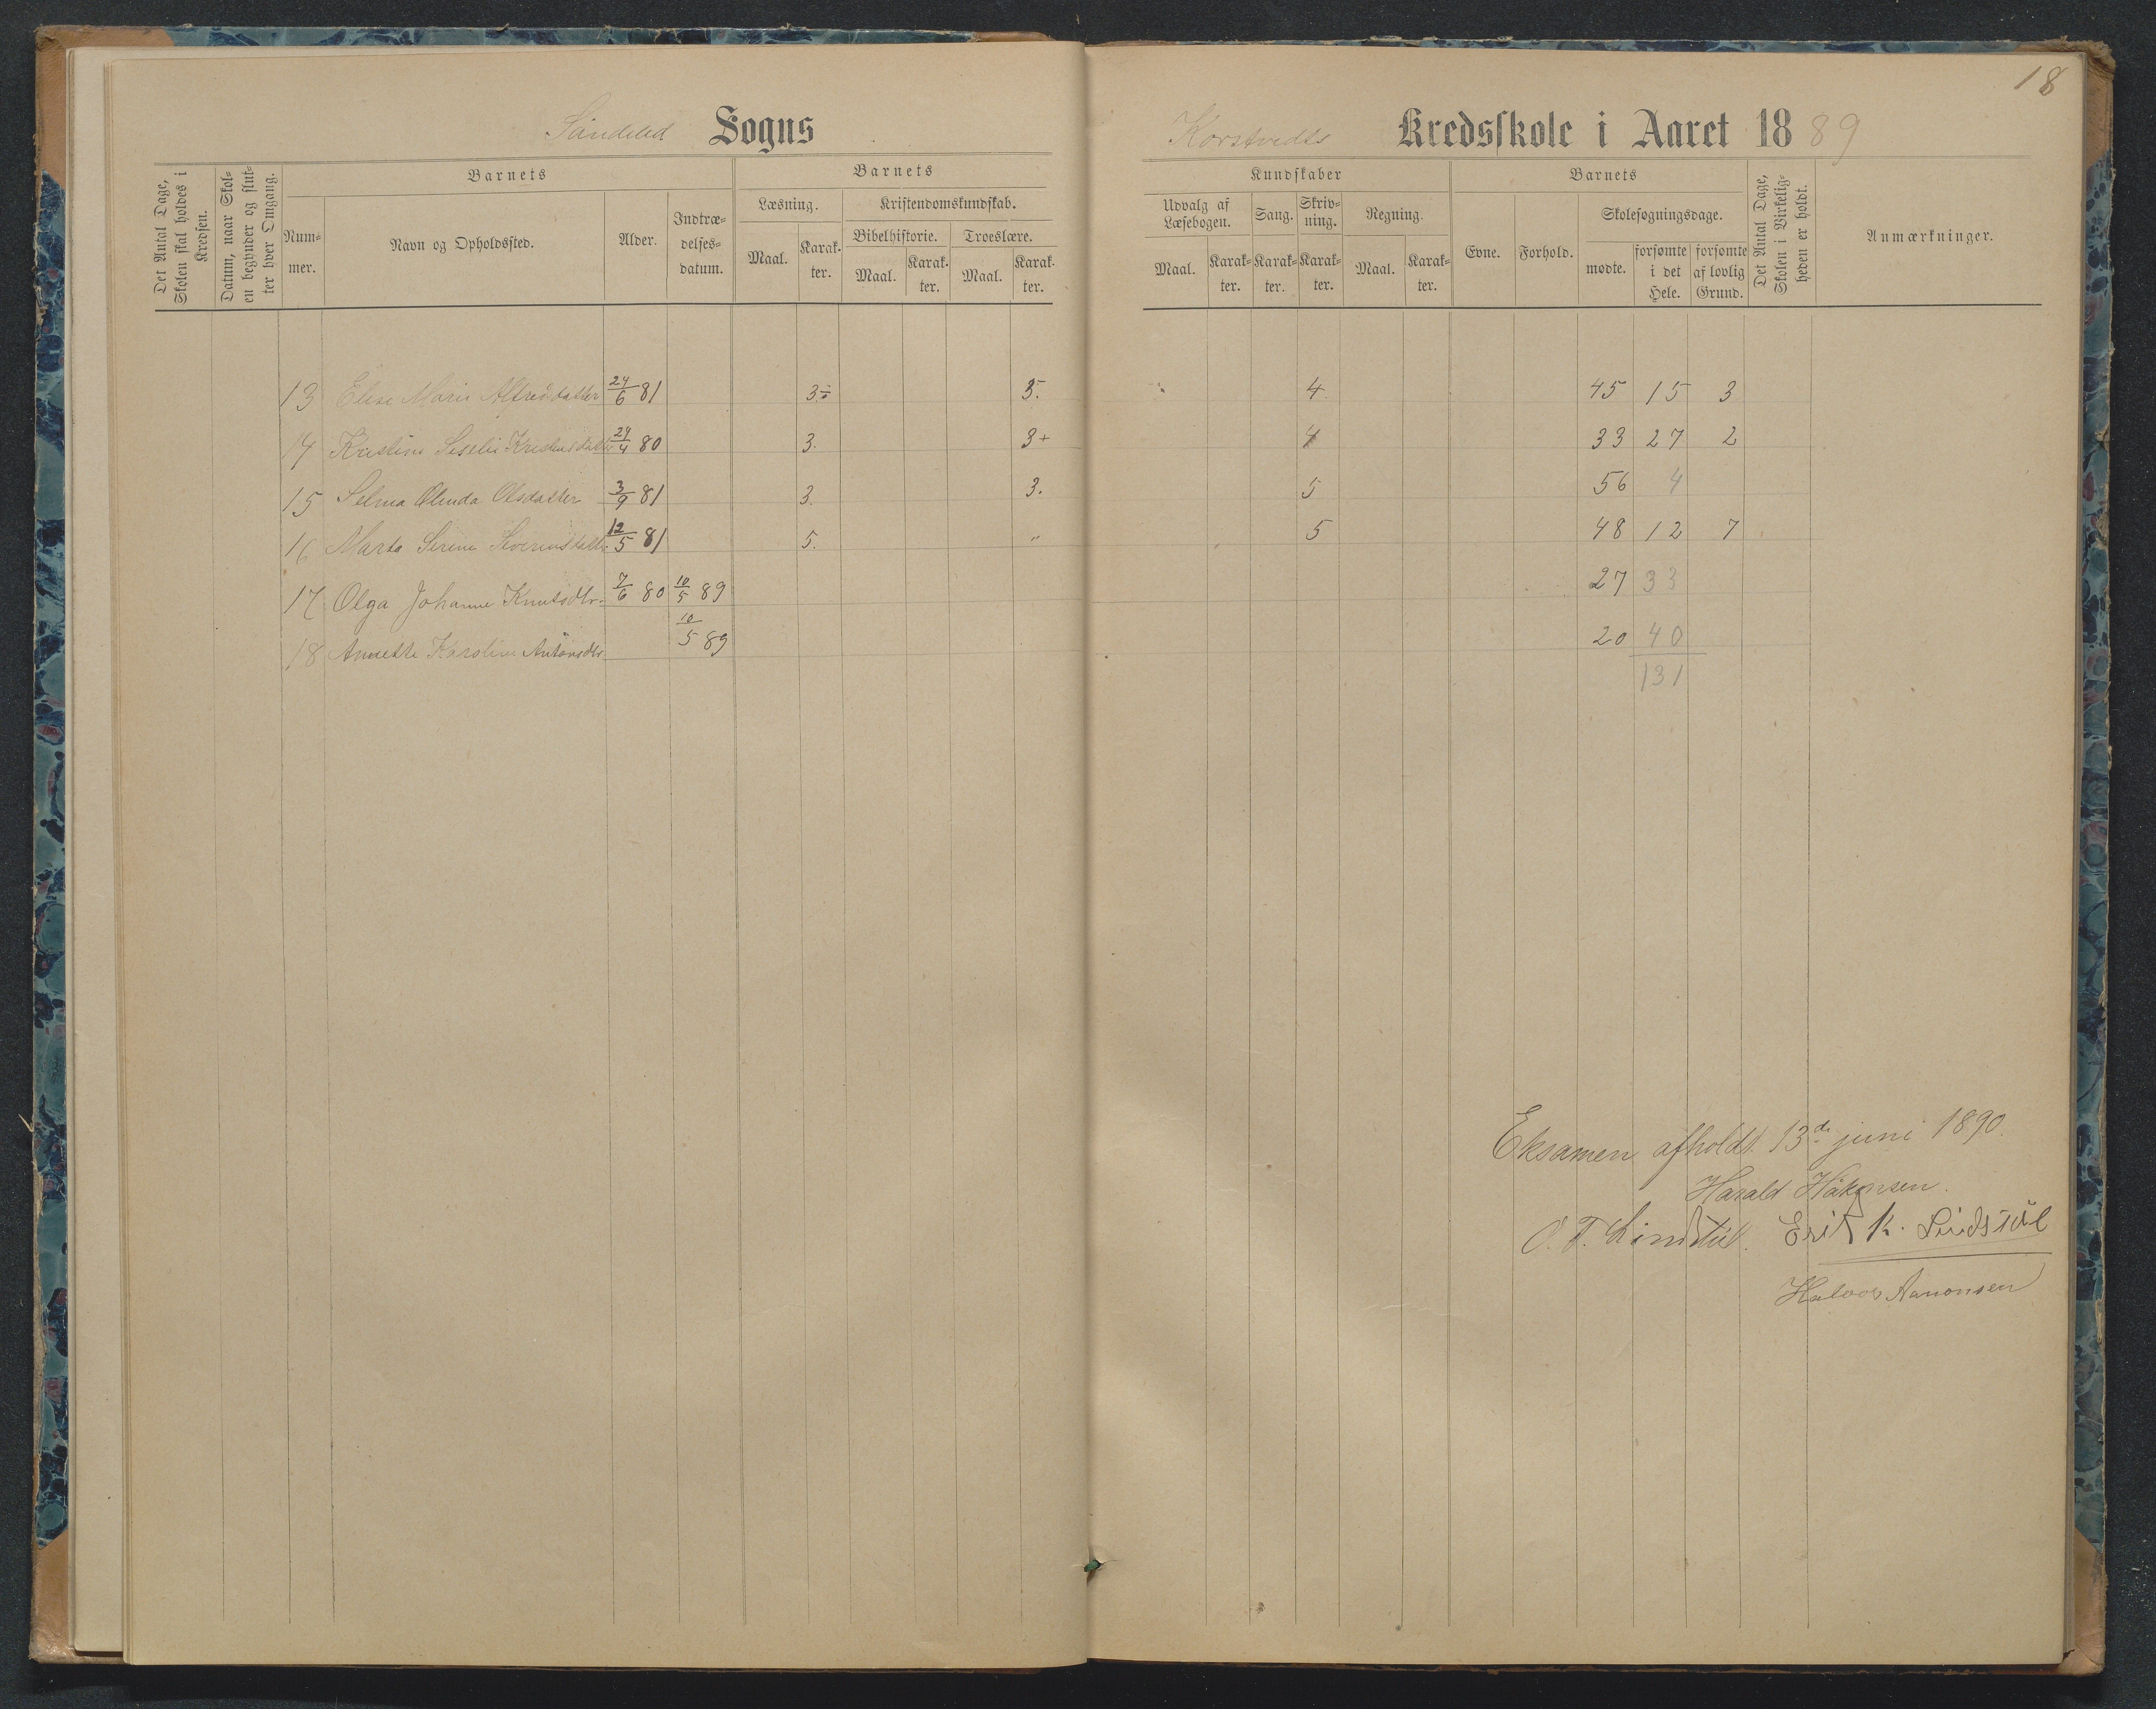 18
Søndeled Sogns
Korstvedts Kredsskole i Aaret 1889
Det Antal Dage, Skolen skal holdes i Kredsen.
Datum, naar Skolen begynder og slutter hver Omgang.
Barnets
Nummer.
Navn og Opholdssted.
Alder.
Indtrædelsesdatum.
Barnets
Læsning.
Maal.
Karakter.
Kristendomskundskab.
Bibelhistorie.
Maal.
Karakter.
Troeslære.
Maal.
Karakter.
Kundskaber
Udvalg af Læsebogen.
Maal.
Karakter.
Sang.
Karakter.
Skrivning.
Karakter.
Regning.
Maal.
Karakter.
Barnets
Evne.
Forhold.
Skolesøgningsdage.
mødte.
forsømte i det Hele.
forsømte af lovlig Grund.
Det Antal Dage, Skolen i Virkeligheden er holdt.
Anmærkninger.
13 Elise Marie Alfredsdatter 24/6 81 3 3. 4 45 15 3
14 Kristine 24/4 80 3. 3+ 4 33 27 2
15 Selma Olinda Olsdatter 3/9 81 3. 3. 5 56 4
16 Marta Serine Severinsdatter 12/5 81 5. " 5 48 12 7
17 Olga Johanne Knutsdtr. 7/6 80 10/5 89 27 33
18 Annette Karoline Antonsdtr. 10/5 89 20 40
131
Eksamen afholdt 13de juni 1890.
Harald Håkonsen.
O. T. Lindstøl. Erik K. Lindstøl
Halvor Aanonsen